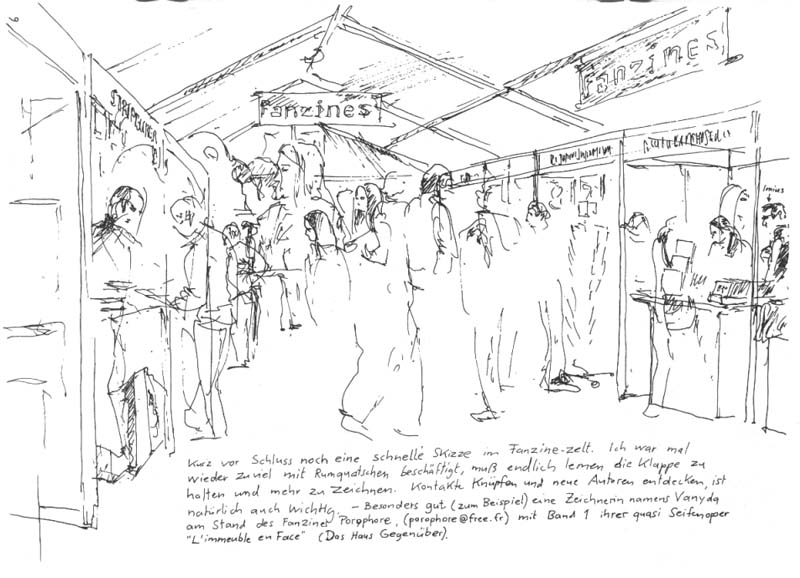 fanzines
fanzines
Kurz vor Schluss noch eine schnelle Skizze im Fanzine-zelt. Ich war mal
wieder zuviel mit Rumquatschen beschäftigt, muß endlich lernen die Klappe zu
halten und mehr zu zeichnen. Kontakte Knüpfen und neue Autoren entdecken, ist
natürlich auch wichtig. – Besonders gut (zum Beispiel) eine Zeichnerin namens Vanyda
am Stand des Fanzines Porophore, (porophore@free.fr) mit Band 1 ihrer quasi Seifenoper
"L'immeuble en Face" (Das Haus Gegenüber).